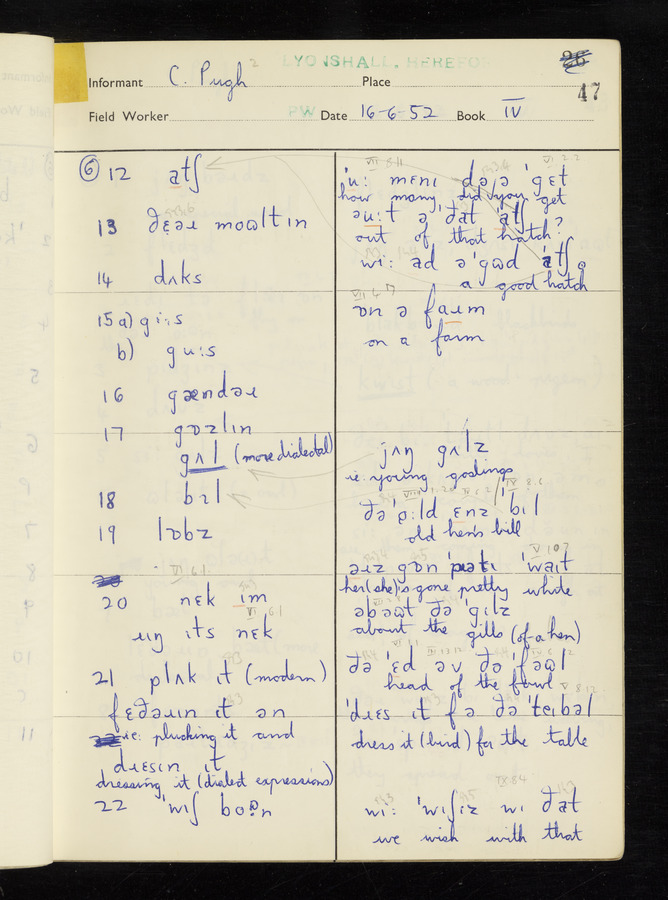 LYONSHALL. HEREFOR
26
Informant C. Pugh 2 Place
47
Field Worker PW Date 16-6-52 Book IV
⑥ 12 atʃ
13 ðɛəɹ moʊltin
14 dʌks
15 a) gi:s
b) gu:s
16 gændəɹ
17 gɒzlin
gʌl (more dialectal)
18 bɪl
19 lɒbz
20 nɛk im
ɹɪŋ its nɛk
21 plʌk it (modern)
fɛðəɹin it ən
ie: plucking it and
dɹɛsin it
dressing it (dialect expressions)
22 'wɪʃ boʊn
'u: mɛnɪ dəə 'gɛt
how many did you get
əu:t ə 'ðat 'atʃ
out of that hatch?
wi: ad ə 'gʊd 'atʃ
a good hatch
ɒn ə faɹm
on a farm
jʌŋ gʌlz
ie. young goslings
ðə 'ɒ:ld ɛnz 'bɪl
old hen's bill
əɹz gɒn 'pɹətɪ 'wait
her (she)'s gone pretty white
əbəʊt ðə 'gɪlz
about the gills (of a hen)
ðə 'ɛd əv ðə 'faʊl
head of the fowl
'dɹɛs it fə ðə 'teɪbəl
dress it (bird) for the table
wi: 'wɪʃiz wi ðat
we wish with that